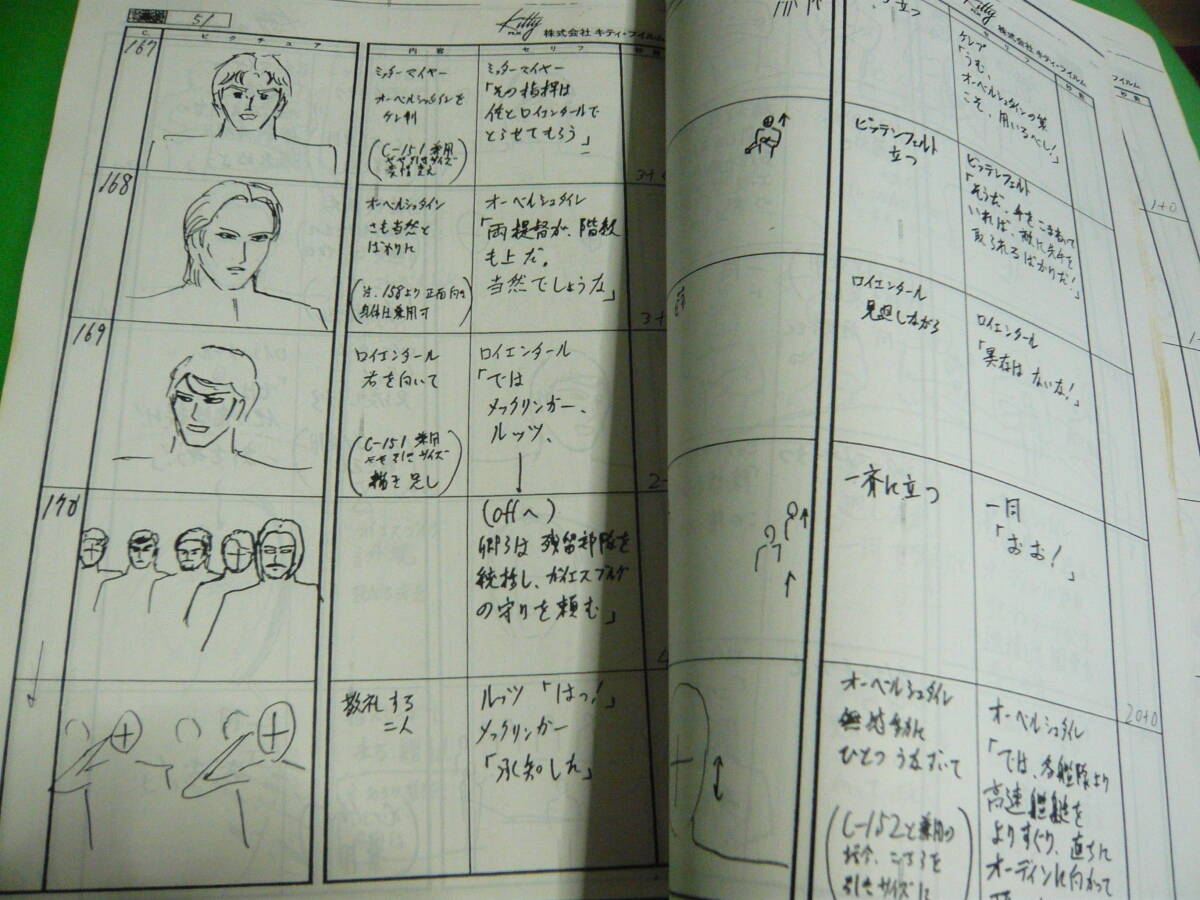 51
Kitty
FILM
株式会社 キティ・フイルム
C
ピクチュア
内容
セリフ
秒数
167
ミッターマイヤー
オーベルシュタインを
ケン制
(C-151 兼用
ミッターマイヤー
「その指揮は
俺とロイエンタールで
とらせてもらう」
168
オーベルシュタイン
さも当然と
ばかりに
(注、158より正面向き
身体は兼用す
オーベルシュタイン
「両提督が、階級
も上だ。
当然でしょうな」
169
ロイエンタール
右を向いて
(C-151 兼用
描き足し)
ロイエンタール
「では
メックリンガー、
ルッツ、
170
(offへ)
卿らは残留部隊を
統括し、ガイエスブルグ
の守りを頼む」
敬礼する
二人
ルッツ「はっ!」
メックリンガー
「承知した」
Kitty
株式会社 キティ・フイルム
セリフ
秒数
立つ
ケンプ
「うむ、
オーベルシュタインの策
こそ、用いるべし!」
ビッテンフェルト
立つ
ビッテンフェルト
「そうだ、手をこまねいて
いれば、敵に先手を
取られるばかりだ!」
ロイエンタール
見廻しながら
ロイエンタール
「異存はないな!」
一斉に立つ
一同
「おお!」
オーベルシュタイン
無感動に
ひとつうなずいて
(C-152と兼用の
オーベルシュタイン
「では、各艦隊より
高速艦艇を
よりすぐり、直ちに
オーディンに向かって
20+0
フイルム
秒数
1+0